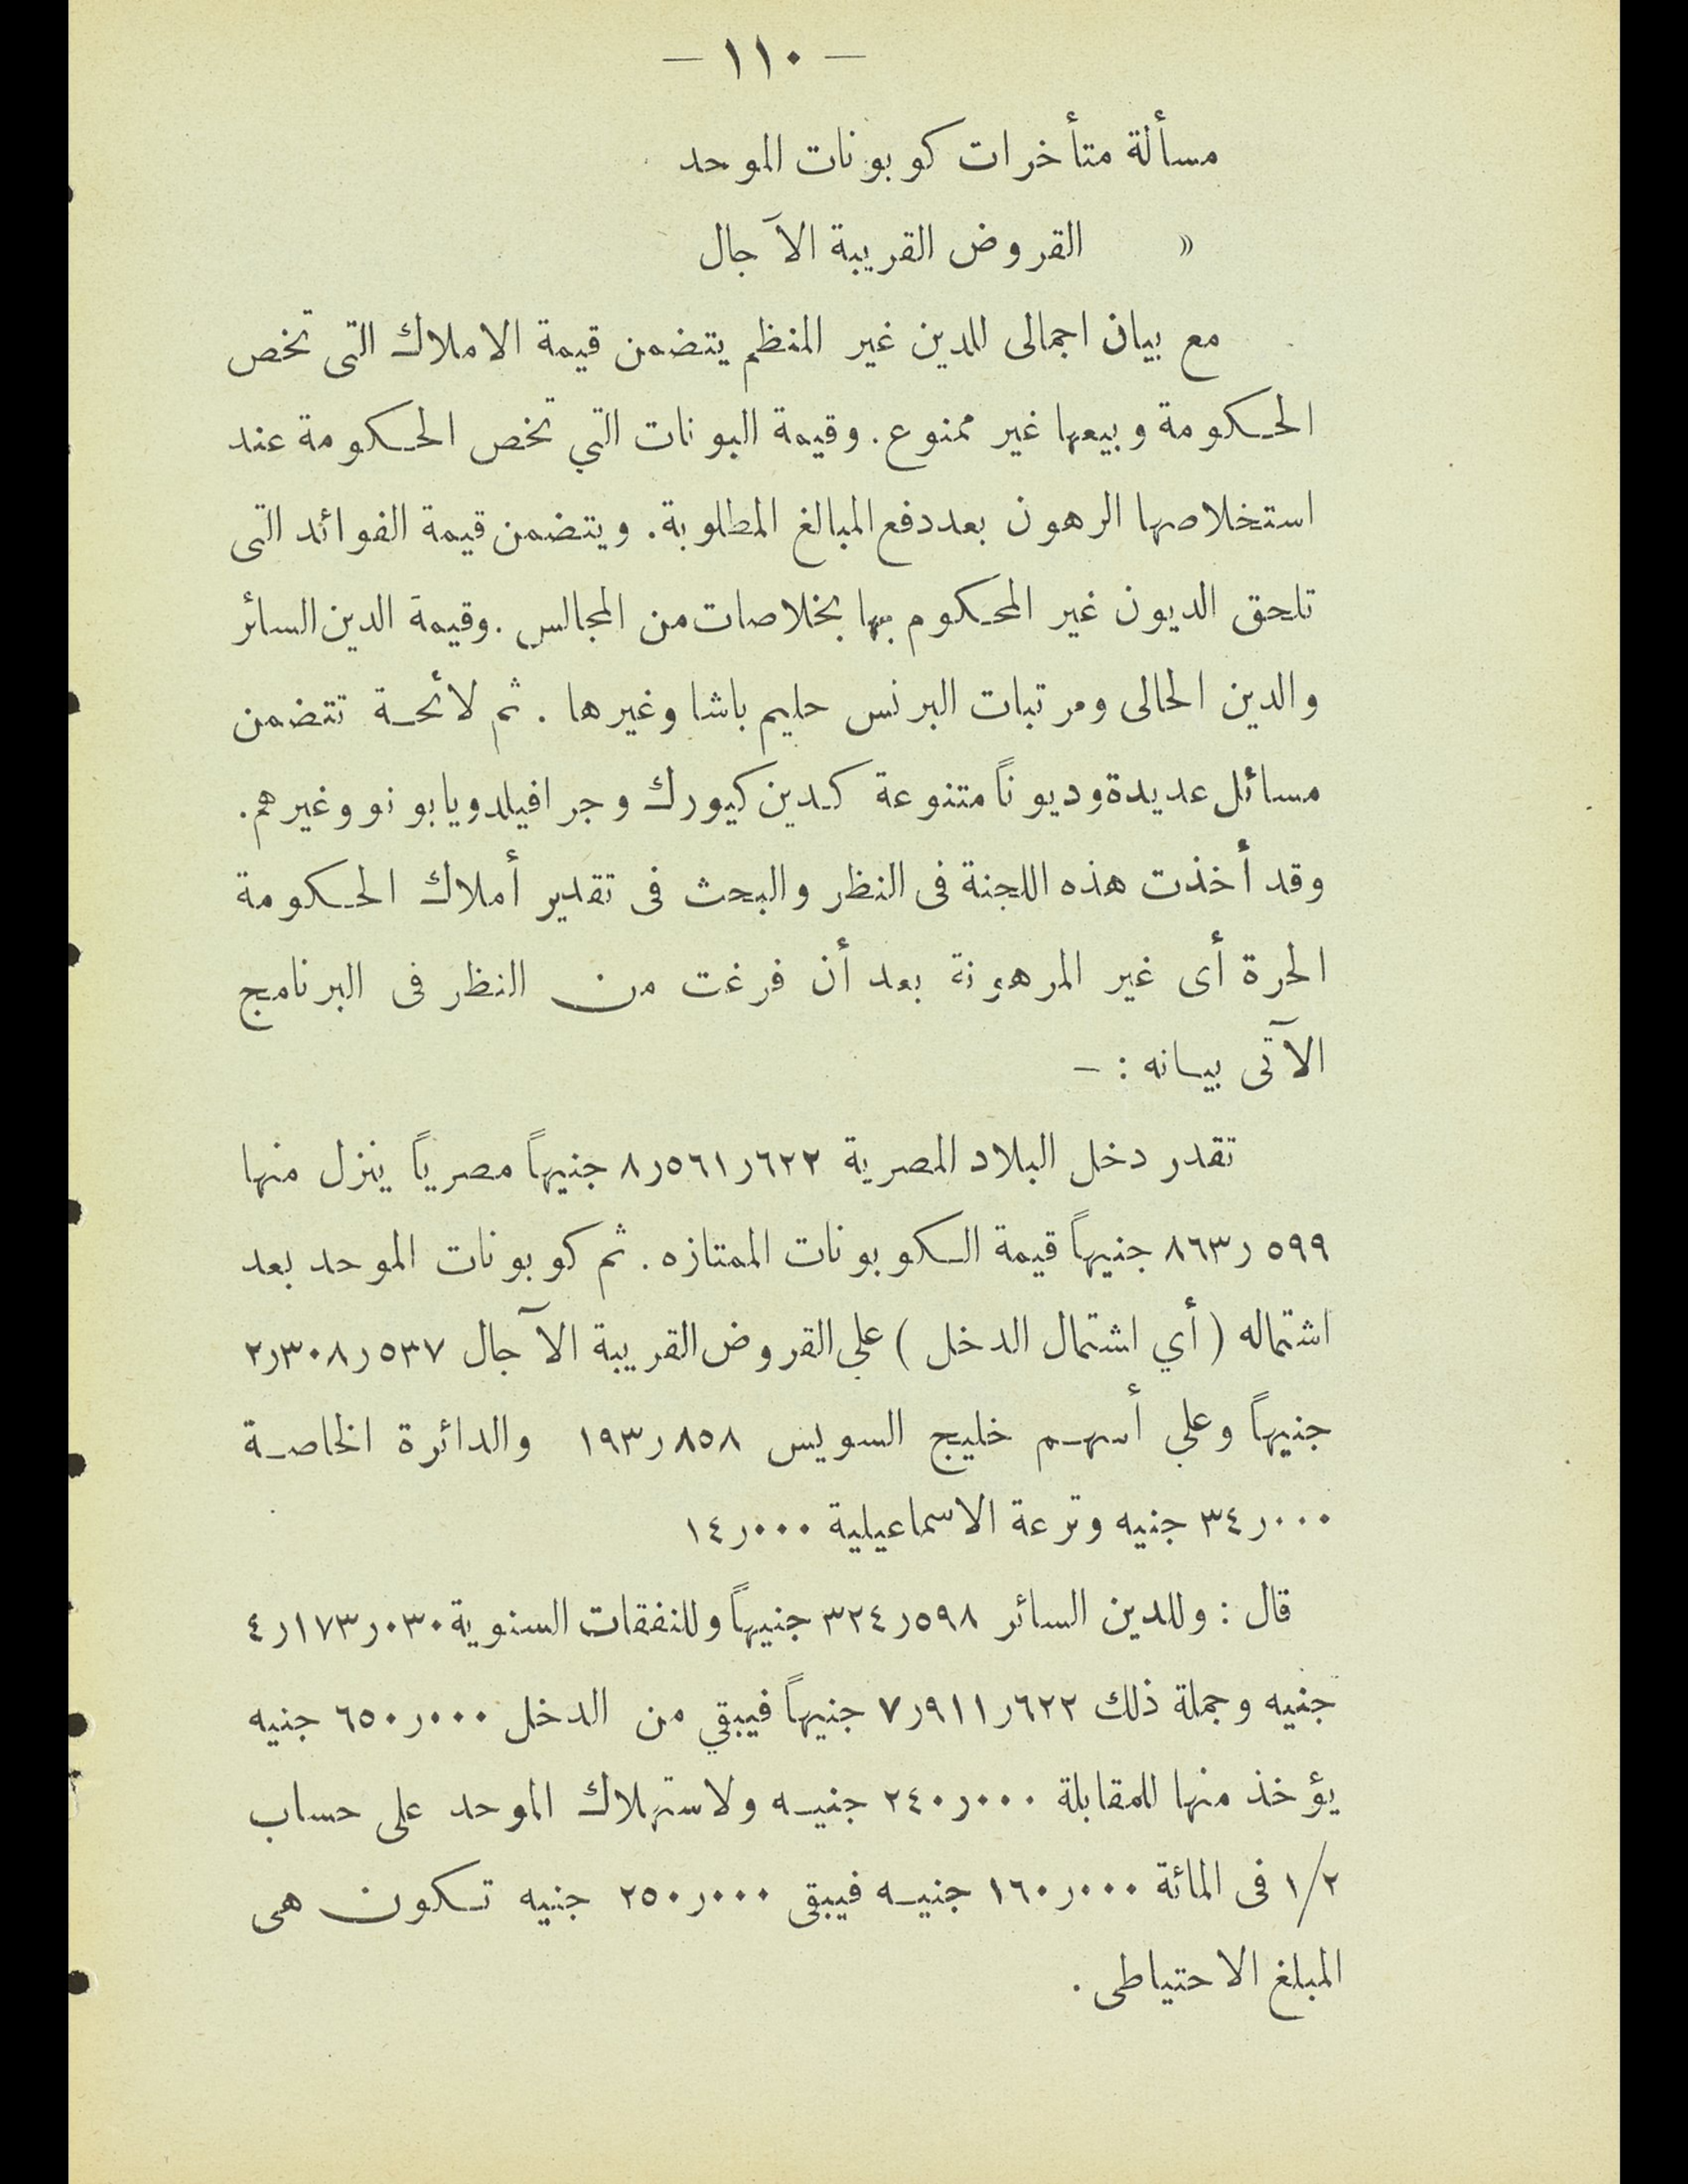 — ١١٠ —
مسألة متأخرات كوبونات الموحد
» القروض القريبة الآجال
مع بيان اجمالى للدين غير المنظم يتضمن قيمة الاملاك التى تخص
الحكومة وبيعها غير ممنوع. وقيمة البونات التي تخص الحكومة عند
استخلاصها الرهون بعد دفع المبالغ المطلوبة. ويتضمن قيمة الفوائد التى
تلحق الديون غير المحكوم بها بخلاصات من المجالس. وقيمة الدين السائر
والدين الحالى ومرتبات البرنس حليم باشا وغيرها. ثم لائحة تتضمن
مسائل عديدة وديوناً متنوعة كدين كيورك وجرافيلد ويابونو وغيرهم.
وقد أخذت هذه اللجنة فى النظر والبحث فى تقدير أملاك الحكومة
الحرة أى غير المرهونة بعد أن فرغت من النظر فى البرنامج
الآتى بيانه : —
تقدر دخل البلاد المصرية ٦٢٢ر٥٦١ر٨ جنيهاً مصرياً ينزل منها
٥٩٩ر٨٦٣ جنيهاً قيمة الكوبونات الممتازه. ثم كوبونات الموحد بعد
اشتماله (أي اشتمال الدخل) علي القروض القريبة الآجال ٥٣٧ر٣٠٨ر٢
جنيهاً وعلي أسهم خليج السويس ٨٥٨ر١٩٣ والدائرة الخاصة
٠٠٠ر٣٤ جنيه وترعة الاسماعيلية ٠٠٠ر١٤
قال : وللدين السائر ٥٩٨ر٣٢٤ جنيهاً وللنفقات السنوية ٠٣٠ر١٧٣ر٤
جنيه وجملة ذلك ٦٢٢ر٩١١ر٧ جنيهاً فيبقي من الدخل ٠٠٠ر٦٥٠ جنيه
يؤخذ منها للمقابلة ٠٠٠ر٢٤٠ جنيه ولاستهلاك الموحد على حساب
١/٢ فى المائة ٠٠٠ر١٦٠ جنيه فيبقى ٠٠٠ر٢٥٠ جنيه تكون هى
المبلغ الاحتياطى.